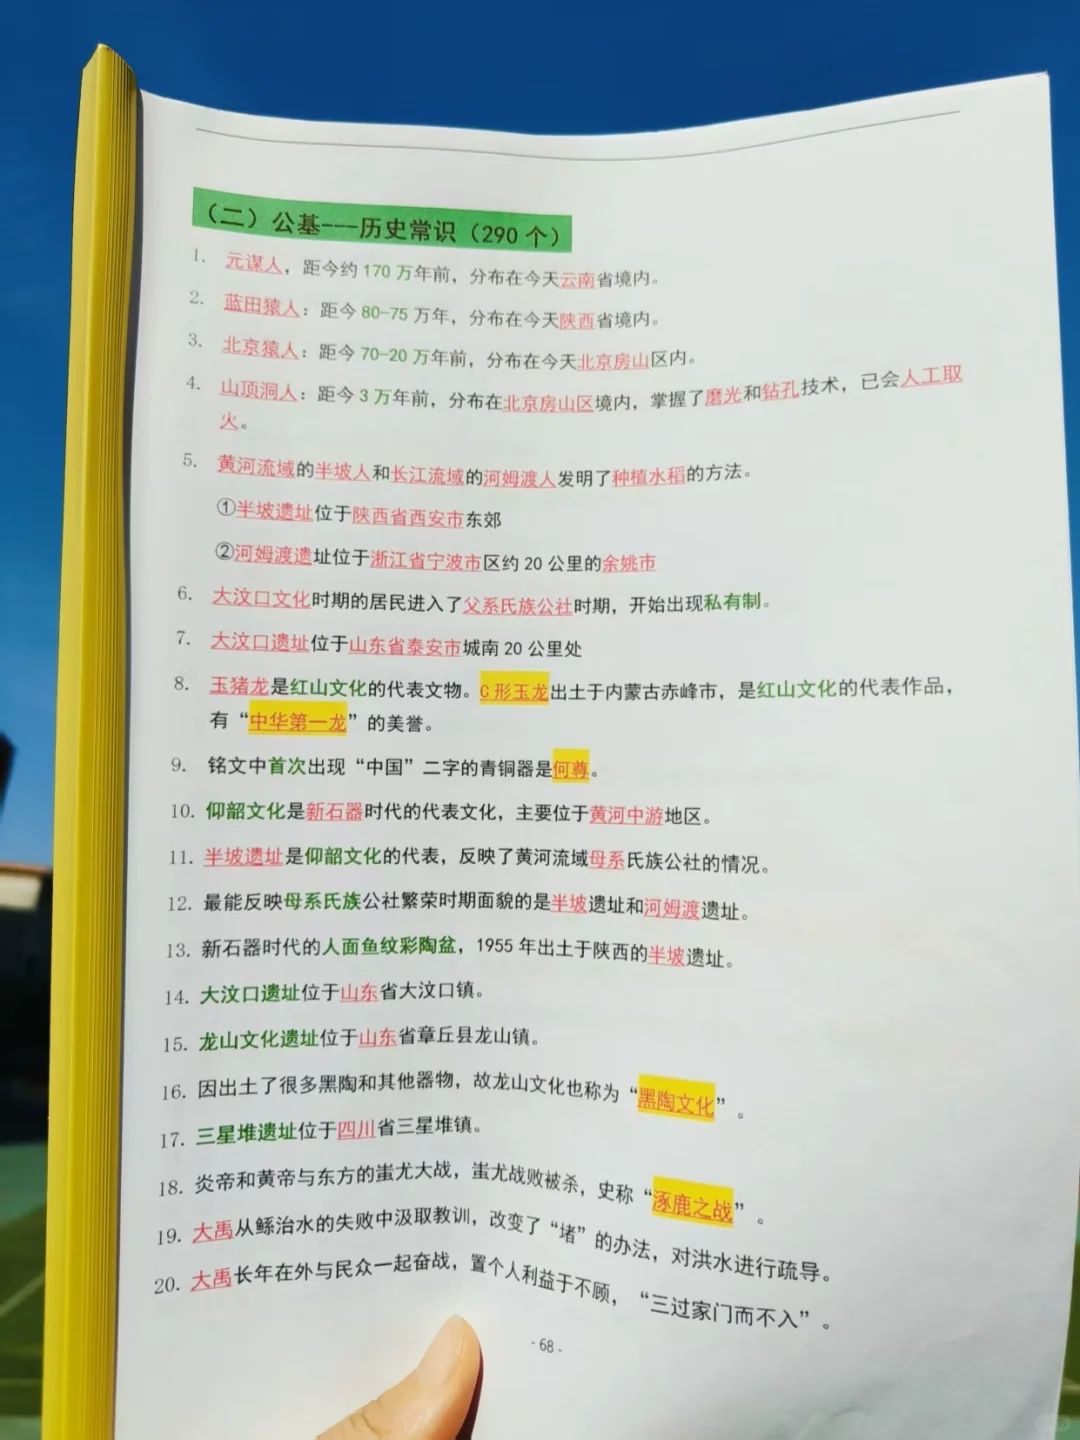 （二）公基---历史常识（290 个）
1. 元谋人，距今约 170 万年前，分布在今天云南省境内。
2. 蓝田猿人：距今 80-75 万年，分布在今天陕西省境内。
3. 北京猿人：距今 70-20 万年前，分布在今天北京房山区内。
4. 山顶洞人：距今 3 万年前，分布在北京房山区境内，掌握了磨光和钻孔技术，已会人工取
火。
5. 黄河流域的半坡人和长江流域的河姆渡人发明了种植水稻的方法。
①半坡遗址位于陕西省西安市东郊
②河姆渡遗址位于浙江省宁波市区约 20 公里的余姚市
6. 大汶口文化时期的居民进入了父系氏族公社时期，开始出现私有制。
7. 大汶口遗址位于山东省泰安市城南 20 公里处
8. 玉猪龙是红山文化的代表文物。C 形玉龙出土于内蒙古赤峰市，是红山文化的代表作品，
有“中华第一龙”的美誉。
9. 铭文中首次出现“中国”二字的青铜器是何尊。
10. 仰韶文化是新石器时代的代表文化，主要位于黄河中游地区。
11. 半坡遗址是仰韶文化的代表，反映了黄河流域母系氏族公社的情况。
12. 最能反映母系氏族公社繁荣时期面貌的是半坡遗址和河姆渡遗址。
13. 新石器时代的人面鱼纹彩陶盆，1955 年出土于陕西的半坡遗址。
14. 大汶口遗址位于山东省大汶口镇。
15. 龙山文化遗址位于山东省章丘县龙山镇。
16. 因出土了很多黑陶和其他器物，故龙山文化也称为“黑陶文化”。
17. 三星堆遗址位于四川省三星堆镇。
18. 炎帝和黄帝与东方的蚩尤大战，蚩尤战败被杀，史称“涿鹿之战”。
19. 大禹从鲧治水的失败中汲取教训，改变了“堵”的办法，对洪水进行疏导。
20. 大禹长年在外与民众一起奋战，置个人利益于不顾，“三过家门而不入”。
- 68 -